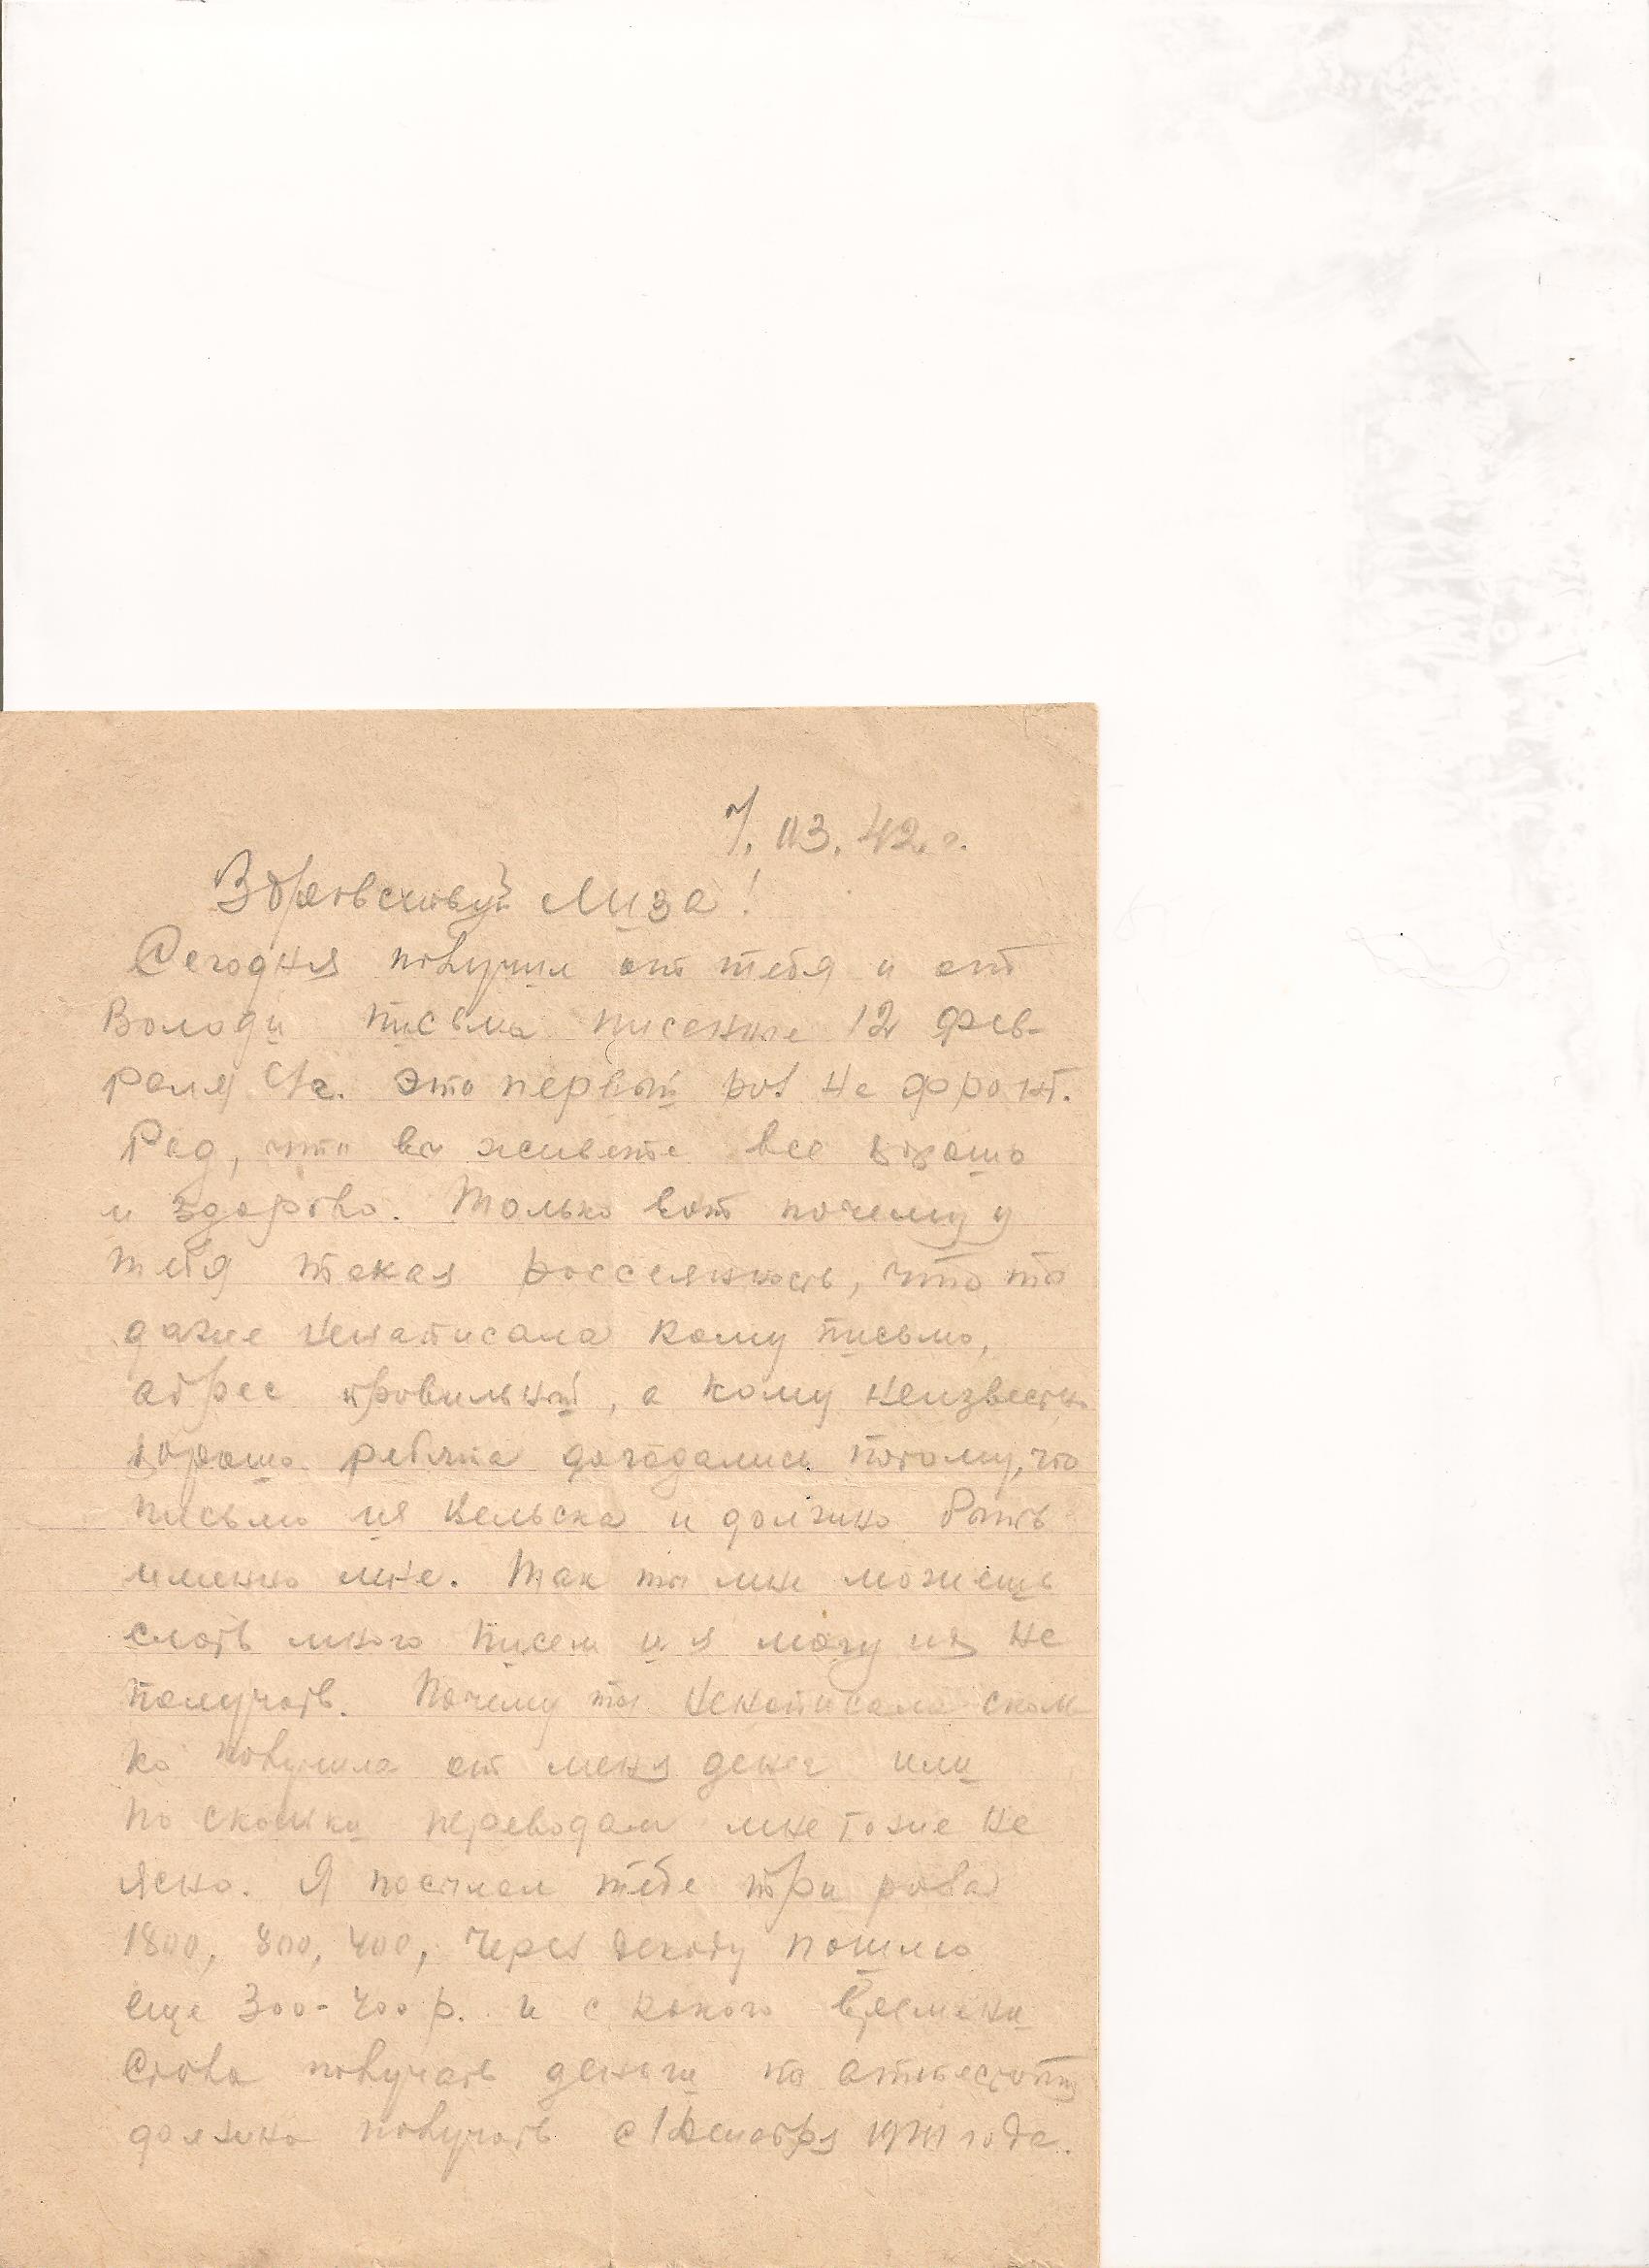 7. 03. 42. г.
Здравствуй Лиза!
Сегодня получил от тебя и от
Володи письма писанные 12 фев-
раля с/г. Это первый раз на фронт.
Рад, что вы живете все хорошо
и здорово. Только вот почему у
тебя такая россеянность, что ты
даже ненаписала кому письмо,
адрес правильный, а кому неизвестно
хорошо ребята догадались потому, что
письмо из Вельска и должно быть
именно мне. Так ты мне можешь
слать много писем и я могу их не
получать. Почему ты ненаписала сколь
ко получила от меня денег или
по скольки переводам мне тоже не
ясно. Я посылал тебе три раза
1800, 800, 400, через декаду пошлю
еще 300-400 р. и с какого времени
стала получать деньги по аттестату
должна получать с 1 декабря 1941 года.